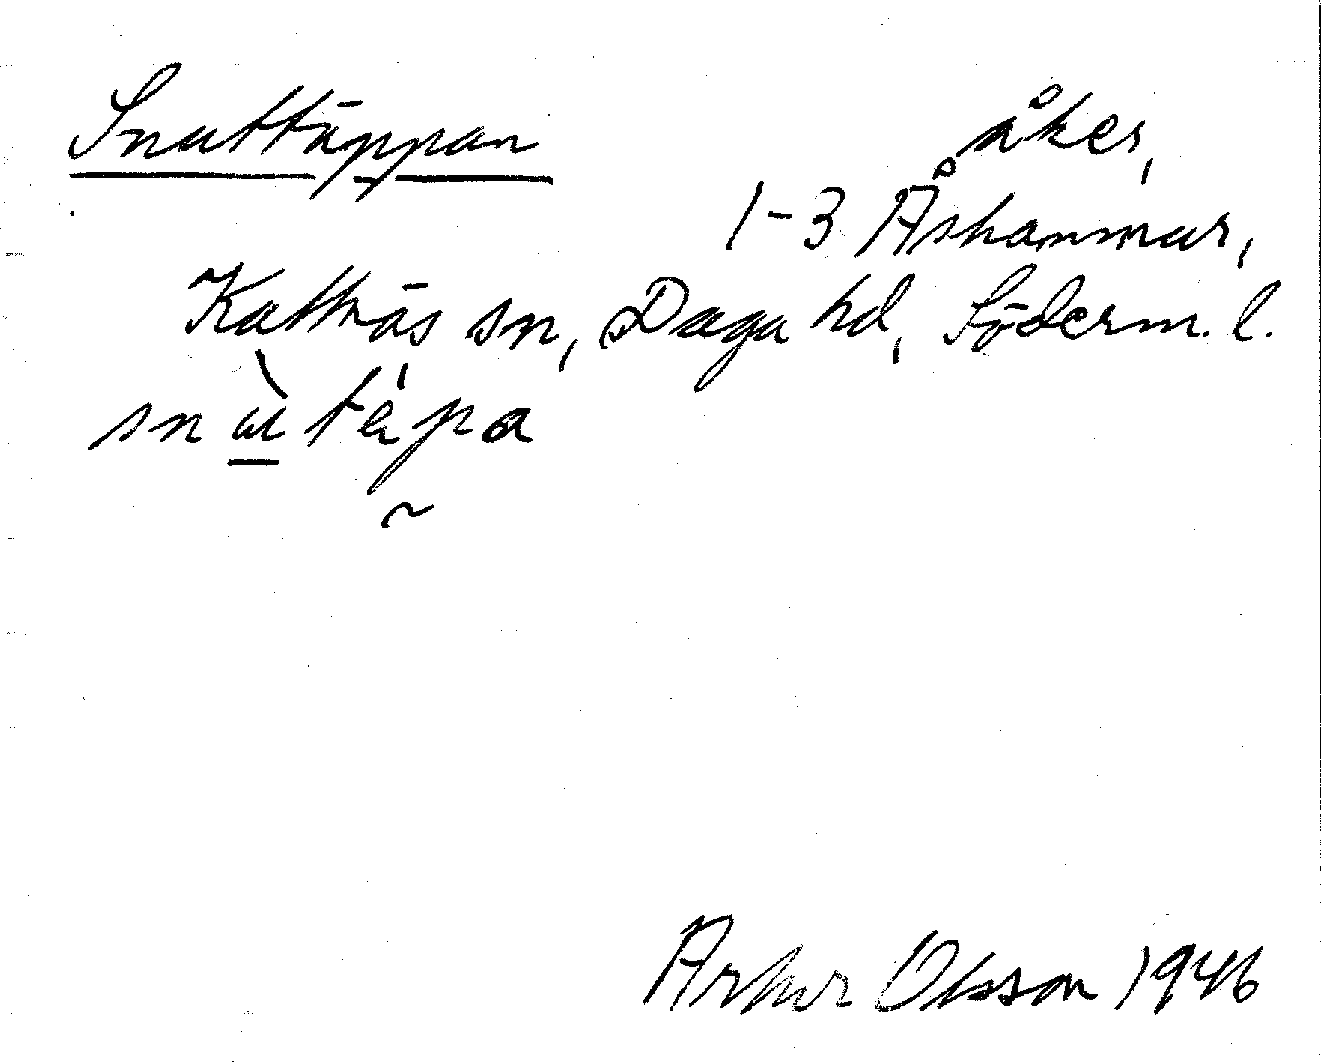 Snuttäppan
åker,
1-3 Åshammar,
Kattnäs sn, Daga hd, Söderm. l.
Artur Olsson 1946